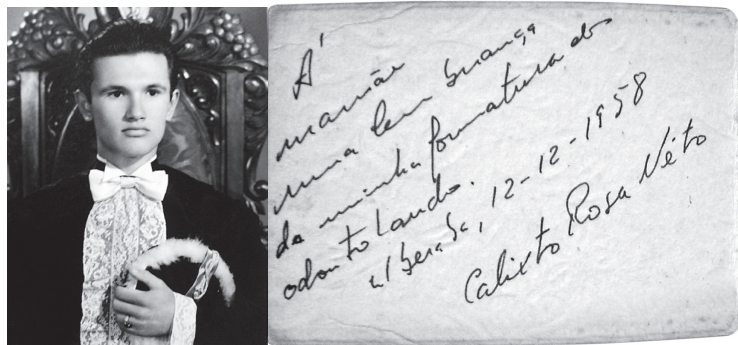 A'
mamãe
uma lembrança
de minha formatura de
odontolando.
Uberaba, 12-12-1958
Calixto Rosa Néto